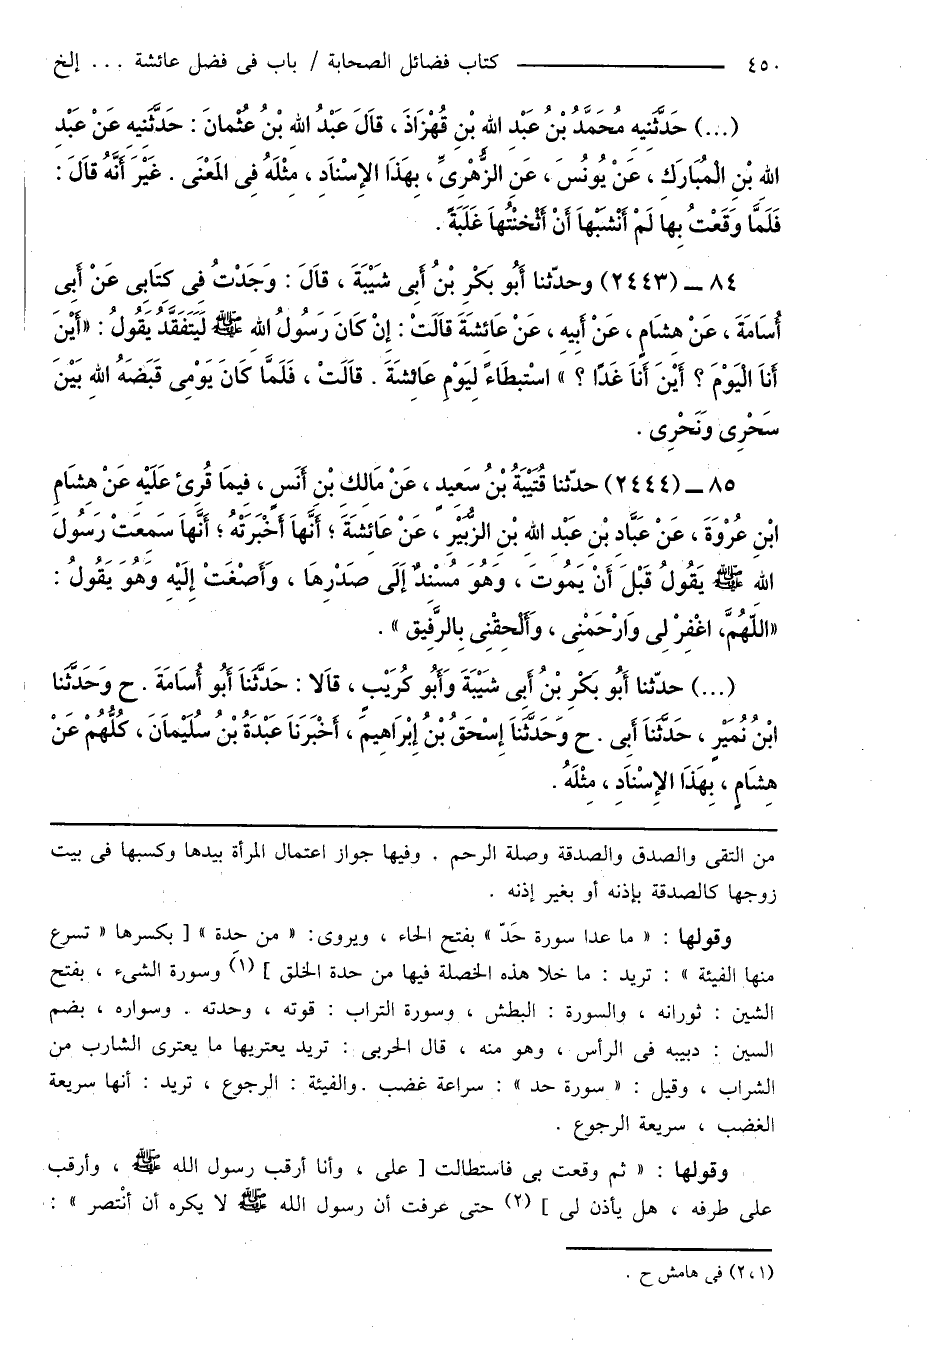 ٤٥٠ ــــــــــــــــ كتاب فضائل الصحابة / باب فى فضل عائشة ... إلخ
(...) حَدَّثَنِيه مُحَمَّدُ بْنُ عَبْدِ اللهِ بْنِ قُهْزَاذَ ، قَالَ عَبْدُ اللهِ بْنُ عُثْمانَ : حَدَّثَنِيهِ عَنْ عَبْدِ
اللهِ بْنِ الْمُبَارَكِ ، عَنْ يُونُسَ ، عَنِ الزُّهْرِىِّ ، بِهَذَا الإِسْنَادِ ، مِثْلَهُ فِى المَعْنَى . غَيْرَ أَنَّهُ قَالَ :
فَلَمَّا وَقَعْتُ بِها لَمْ أَنْشَبْهَا أَنْ أَثْخَنْتُهَا غَلَبَةً .
٨٤ ــ (٢٤٤٣) وحدّثنا أَبُو بَكْرِ بْنُ أَبِى شَيْبَةَ ، قَالَ : وَجَدْتُ فِى كِتَابِى عَنْ أَبِى
أُسَامَةَ ، عَنْ هِشَامٍ ، عَنْ أَبِيهِ ، عَنْ عَائِشَةَ قَالَتْ : إِنْ كَانَ رَسُولُ اللهِ ﷺ لَيَتَفَقَّدُ يَقُولُ : «أَيْنَ
أَنَا الْيَوْمَ ؟ أَيْنَ أَنَا غَدًا ؟ » اسْتِبْطَاءً لِيَوْمِ عَائِشَةَ . قَالَتْ ، فَلَمَّا كَانَ يَوْمِى قَبَضَهُ اللهُ بَيْنَ
سَحْرِى وَنَحْرِى .
٨٥ ــ (٢٤٤٤) حدّثنا قُتَيْبَةُ بْنُ سَعِيدٍ ، عَنْ مَالِكِ بْنِ أَنَسٍ ، فِيمَا قُرِئَ عَلَيْهِ عَنْ هِشَامِ
ابْنِ عُرْوَةَ ، عَنْ عَبَّادِ بْنِ عَبْدِ اللهِ بْنِ الزُّبَيْرِ ، عَنْ عَائِشَةَ ؛ أَنَّهَا أَخْبَرَتْهُ ؛ أَنَّهَا سَمِعَتْ رَسُولَ
اللهِ ﷺ يَقُولُ قَبْلَ أَنْ يَمُوتَ ، وَهُوَ مُسْنِدٌ إِلَى صَدْرِهَا ، وَأَصْغَتْ إِلَيْهِ وَهُوَ يَقُولُ :
«اللَّهُمَّ، اغْفِرْ لِى وَارْحَمْنِى ، وَأَلْحِقْنِى بِالرَّفِيقِ » .
(...) حدّثنا أَبُو بَكْرِ بْنُ أَبِى شَيْبَةَ وَأَبُو كُرَيْبٍ ، قَالَا : حَدَّثَنَا أَبُو أُسَامَةَ . ح وَحَدَّثَنَا
ابْنُ نُمَيْرٍ ، حَدَّثَنَا أَبِى . ح وَحَدَّثَنَا إِسْحَقُ بْنُ إِبْرَاهِيمَ ، أَخْبَرَنَا عَبْدَةُ بْنُ سُلَيْمانَ ، كُلُّهُمْ عَنْ
هِشَامٍ ، بِهَذَا الإِسْنَادِ ، مِثْلَهُ .
من التقى والصدق والصدقة وصلة الرحم . وفيها جواز اعتمال المرأة بيدها وكسبها فى بيت
زوجها كالصدقة بإذنه أو بغير إذنه .
وقولها : « ما عدا سورة حَدّ » بفتح الحاء ، ويروى: « من حِدة » [ بكسرها « تسرع
منها الفيئة » : تريد : ما خلا هذه الخصلة فيها من حدة الخلق ] (١) وسورة الشىء ، بفتح
الشين : ثورانه ، والسورة : البطش ، وسورة التراب : قوته ، وحدته . وسواره ، بضم
السين : دبيبه فى الرأس ، وهو منه ، قال الحربى : تريد يعتريها ما يعترى الشارب من
الشراب ، وقيل : « سورة حد » : سراعة غضب .والفيئة : الرجوع ، تريد : أنها سريعة
الغضب ، سريعة الرجوع .
وقولها : « ثم وقعت بى فاستطالت [ على ، وأنا أرقب رسول الله ﷺ ، وأرقب
على طرفه ، هل يأذن لى ] (٢) حتى عرفت أن رسول الله ﷺ لا يكره أن أنْتصر » :
(١،٢) فى هامش ح .